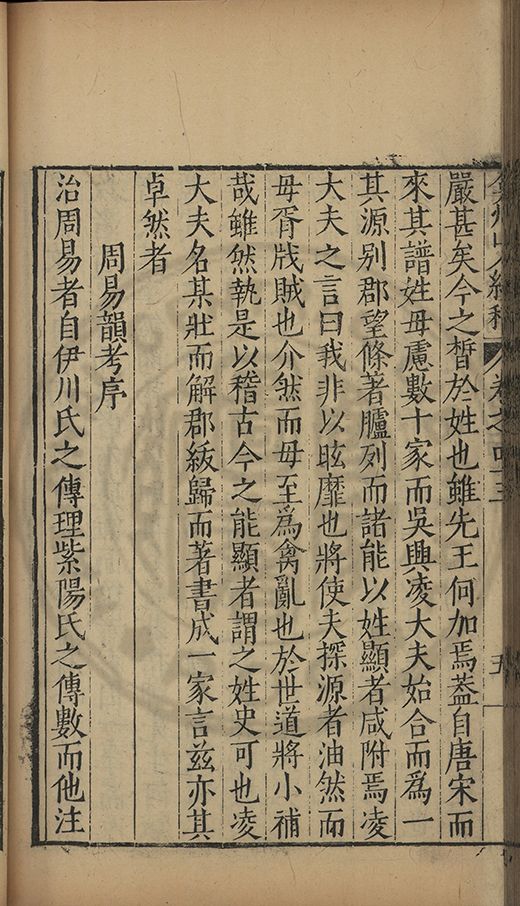 弇州山人續稿 卷之四十三 五
嚴甚矣今之晳於姓也雖先王何加焉葢自唐宋而
來其譜姓毋慮數十家而吳興凌大夫始合而爲一
其源别郡望條著臚列而諸能以姓顯者咸附焉凌
大夫之言曰我非以眩靡也將使夫探源者油然而
毋胥戕賊也介然而毋至爲禽亂也於世道將小補
哉雖然執是以稽古今之能顯者謂之姓史可也凌
大夫名某壯而解郡紱歸而著書成一家言兹亦其
卓然者
周易韻考序
治周易者自伊川氏之傳理紫陽氏之傳數而他注